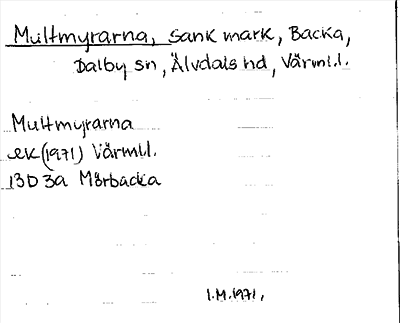 Multmyrarna, sank mark, Backa,
Dalby sn, Älvdals hd, Värml.
Multmyrarna
ek (1971) Värml.
13D 3a Mörbacka
I.M. 1971.